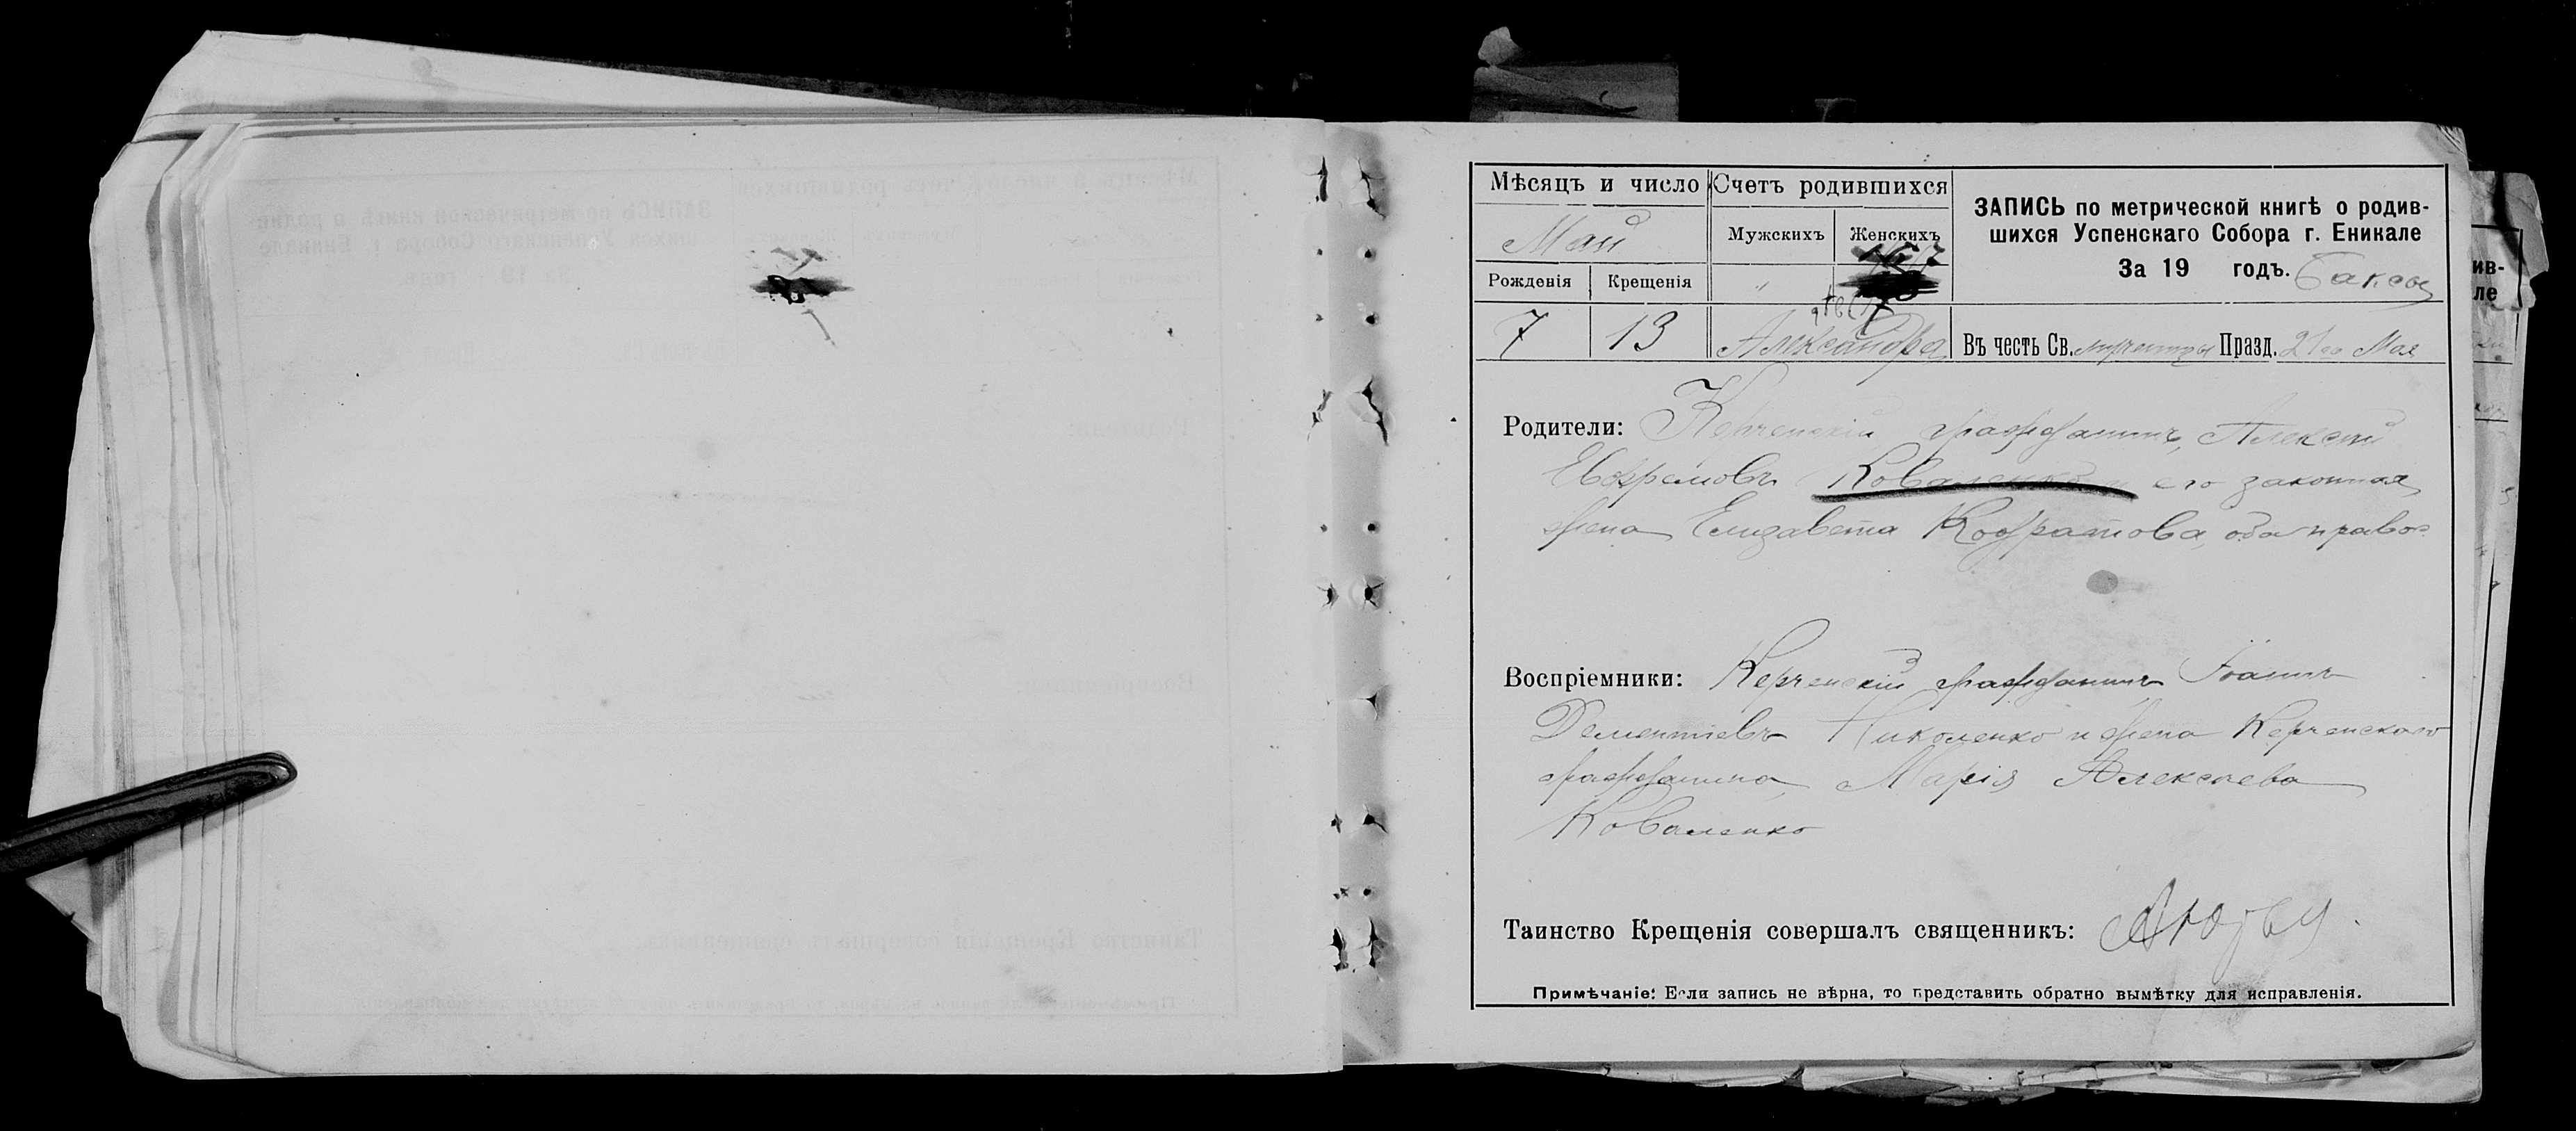 Мѣсяцъ и число
Счетъ родившихся
Май
Мужскихъ
Женскихъ
Рожденія
Крещенія
"
7
13
Александра
ЗАПИСЬ по метрической книгѣ о родив-
шихся Успенскаго Собора г. Еникале
За 19 годъ. Баксы
Въ честь Св. мученицы Празд. 21го Мая
Родители: Керченскій гражданинъ Алексій
Евфремовъ Коваленко и его законная
жена Елизавета Кодратова, оба правос.
Воспріемники: Керченскій гражданинъ Іоаннъ
Дементіевъ Николенко и жена Керченскаго
гражданина Марія Алексѣева
Коваленко
Таинство Крещенія совершалъ священникъ:
Примѣчаніе: Если запись не вѣрна, то представить обратно вымѣтку для исправленія.